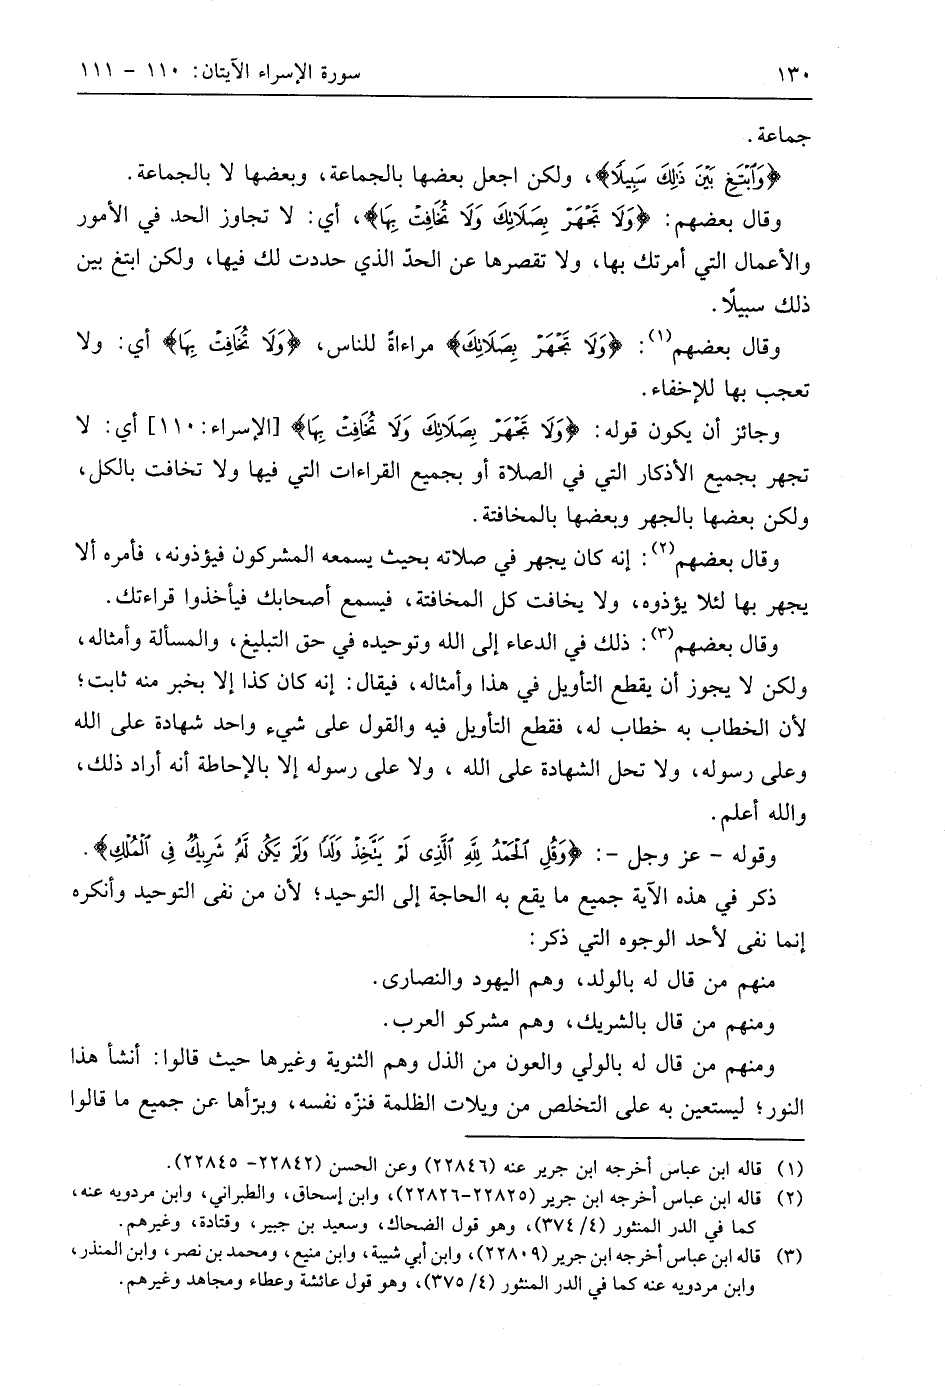 ١٣٠ سورة الإسراء الآيتان: ١١٠ - ١١١
جماعة.
﴿وَٱبْتَغِ بَيْنَ ذَٰلِكَ سَبِيلًا﴾، ولكن اجعل بعضها بالجماعة، وبعضها لا بالجماعة.
وقال بعضهم: ﴿وَلَا تَجْهَرْ بِصَلَاتِكَ وَلَا تُخَافِتْ بِهَا﴾، أي: لا تجاوز الحد في الأمور
والأعمال التي أمرتك بها، ولا تقصرها عن الحدّ الذي حددت لك فيها، ولكن ابتغ بين
ذلك سبيلًا.
وقال بعضهم(١): ﴿وَلَا تَجْهَرْ بِصَلَاتِكَ﴾ مراءاةً للناس، ﴿وَلَا تُخَافِتْ بِهَا﴾ أي: ولا
تعجب بها للإخفاء.
وجائز أن يكون قوله: ﴿وَلَا تَجْهَرْ بِصَلَاتِكَ وَلَا تُخَافِتْ بِهَا﴾ [الإسراء: ١١٠] أي: لا
تجهر بجميع الأذكار التي في الصلاة أو بجميع القراءات التي فيها ولا تخافت بالكل،
ولكن بعضها بالجهر وبعضها بالمخافتة.
وقال بعضهم(٢): إنه كان يجهر في صلاته بحيث يسمعه المشركون فيؤذونه، فأمره ألا
يجهر بها لئلا يؤذوه، ولا يخافت كل المخافتة، فيسمع أصحابك فيأخذوا قراءتك.
وقال بعضهم(٣): ذلك في الدعاء إلى الله وتوحيده في حق التبليغ، والمسألة وأمثاله،
ولكن لا يجوز أن يقطع التأويل في هذا وأمثاله، فيقال: إنه كان كذا إلا بخبر منه ثابت؛
لأن الخطاب به خطاب له، فقطع التأويل فيه والقول على شيء واحد شهادة على الله
وعلى رسوله، ولا تحل الشهادة على الله ، ولا على رسوله إلا بالإحاطة أنه أراد ذلك،
والله أعلم.
وقوله - عز وجل -: ﴿وَقُلِ ٱلْحَمْدُ لِلَّهِ ٱلَّذِى لَمْ يَتَّخِذْ وَلَدًا وَلَمْ يَكُن لَّهُۥ شَرِيكٌ فِى ٱلْمُلْكِ﴾.
ذكر في هذه الآية جميع ما يقع به الحاجة إلى التوحيد؛ لأن من نفى التوحيد وأنكره
إنما نفى لأحد الوجوه التي ذكر:
منهم من قال له بالولد، وهم اليهود والنصارى.
ومنهم من قال بالشريك، وهم مشركو العرب.
ومنهم من قال له بالولي والعون من الذل وهم الثنوية وغيرها حيث قالوا: أنشأ هذا
النور؛ ليستعين به على التخلص من ويلات الظلمة فنزّه نفسه، وبرّأها عن جميع ما قالوا
(١) قاله ابن عباس أخرجه ابن جرير عنه (٢٢٨٤٦) وعن الحسن (٢٢٨٤٢- ٢٢٨٤٥).
(٢) قاله ابن عباس أخرجه ابن جرير (٢٢٨٢٥-٢٢٨٢٦)، وابن إسحاق، والطبراني، وابن مردويه عنه،
كما في الدر المنثور (٤/ ٣٧٤)، وهو قول الضحاك، وسعيد بن جبير، وقتادة، وغيرهم.
(٣) قاله ابن عباس أخرجه ابن جرير (٢٢٨٠٩)، وابن أبي شيبة، وابن منيع، ومحمد بن نصر، وابن المنذر،
وابن مردويه عنه كما في الدر المنثور (٤/ ٣٧٥)، وهو قول عائشة وعطاء ومجاهد وغيرهم.